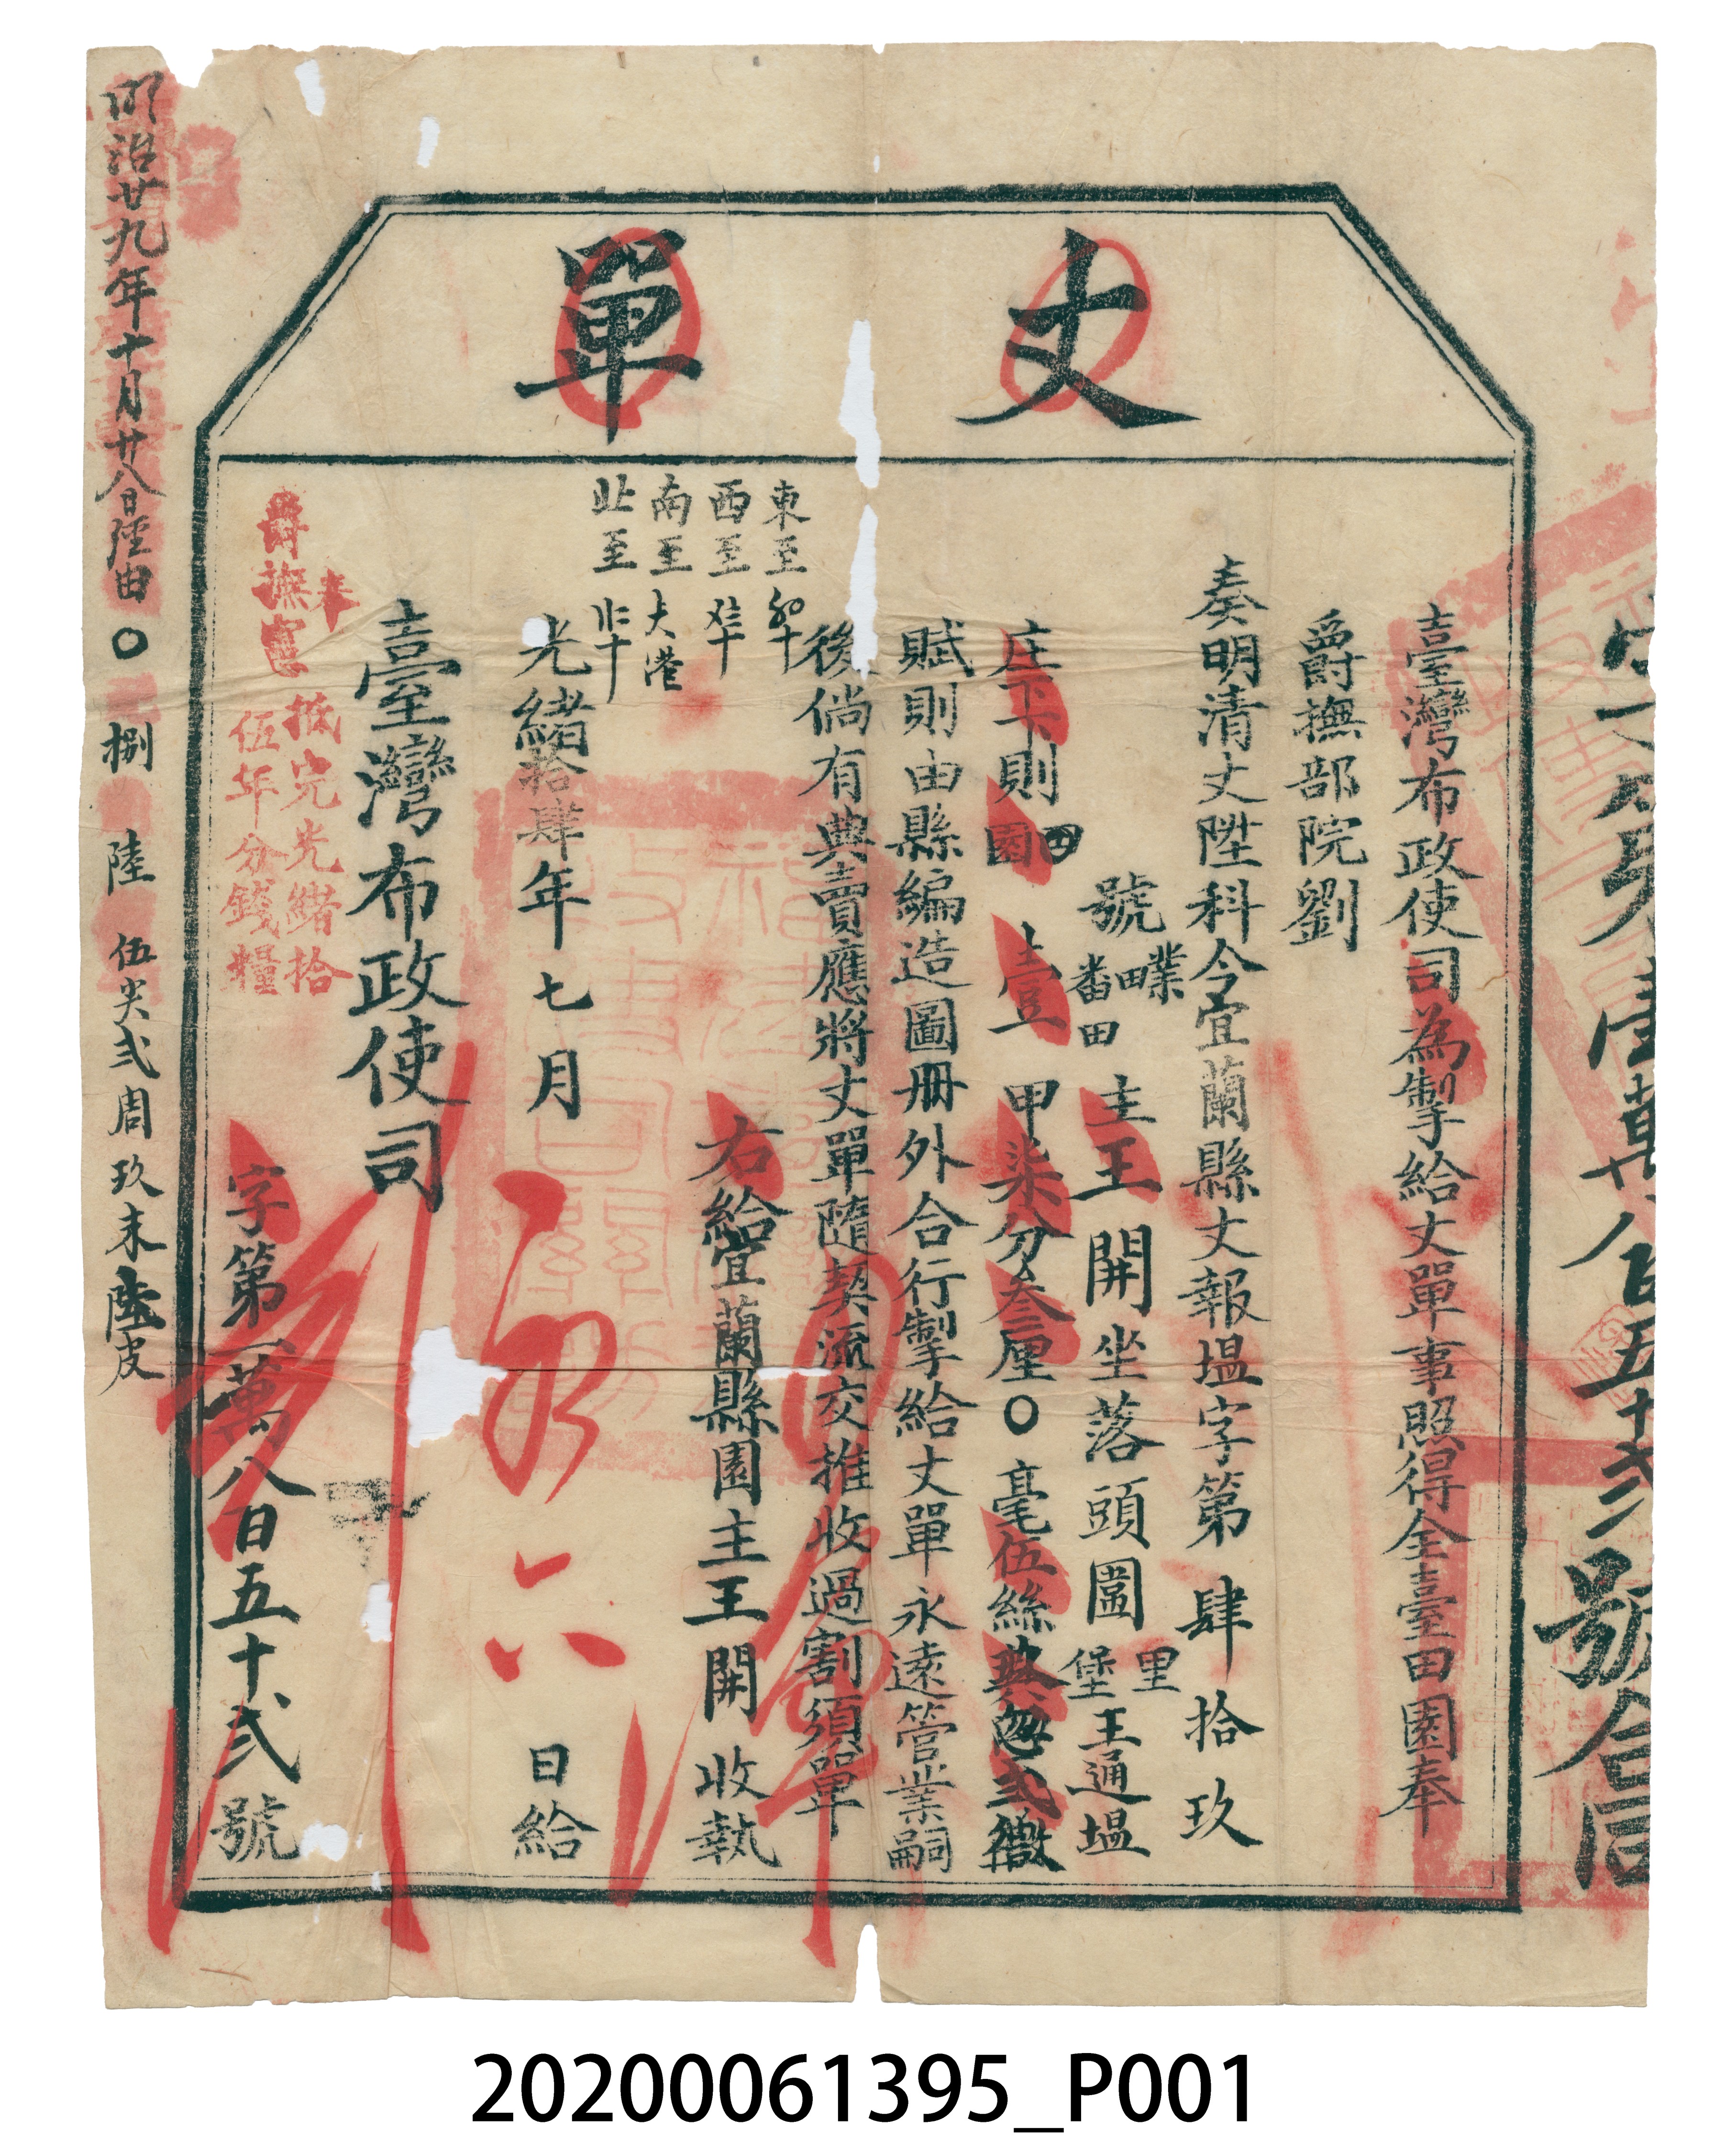 丈單
臺灣布政使司為掣給丈單事照得全臺田園奉
爵撫部院劉
奏明清丈陞科今宜蘭縣丈報塭字第肆拾玖
號業田番田主王開坐落頭圍里堡王通塭
庄下則田園壹甲柒分叁厘〇毫伍絲忽弍微
賦則由縣編造圖冊外合行掣給丈單永遠管業嗣
後倘有典賣應將丈單隨契流交推收過割須單
右給宜蘭縣園主王開收執
東至
西至
南至大港
北至
光緒拾肆年七月日給
臺灣布政使司
奉
爵撫憲抵完光緒拾
伍年分錢糧
字第一萬八百五十弍號
明治廿九年十月廿八日經由〇捌陸伍尖弍周玖末陸皮
號合同
20200061395_P001